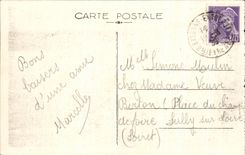 CARTE POSTALE
Bons
baisers
d'une amie
Marcelle
Melle Simone Moulin
chez Madame Veuve
Berton Place du champ
de foire Sully sur Loire
(Loiret)